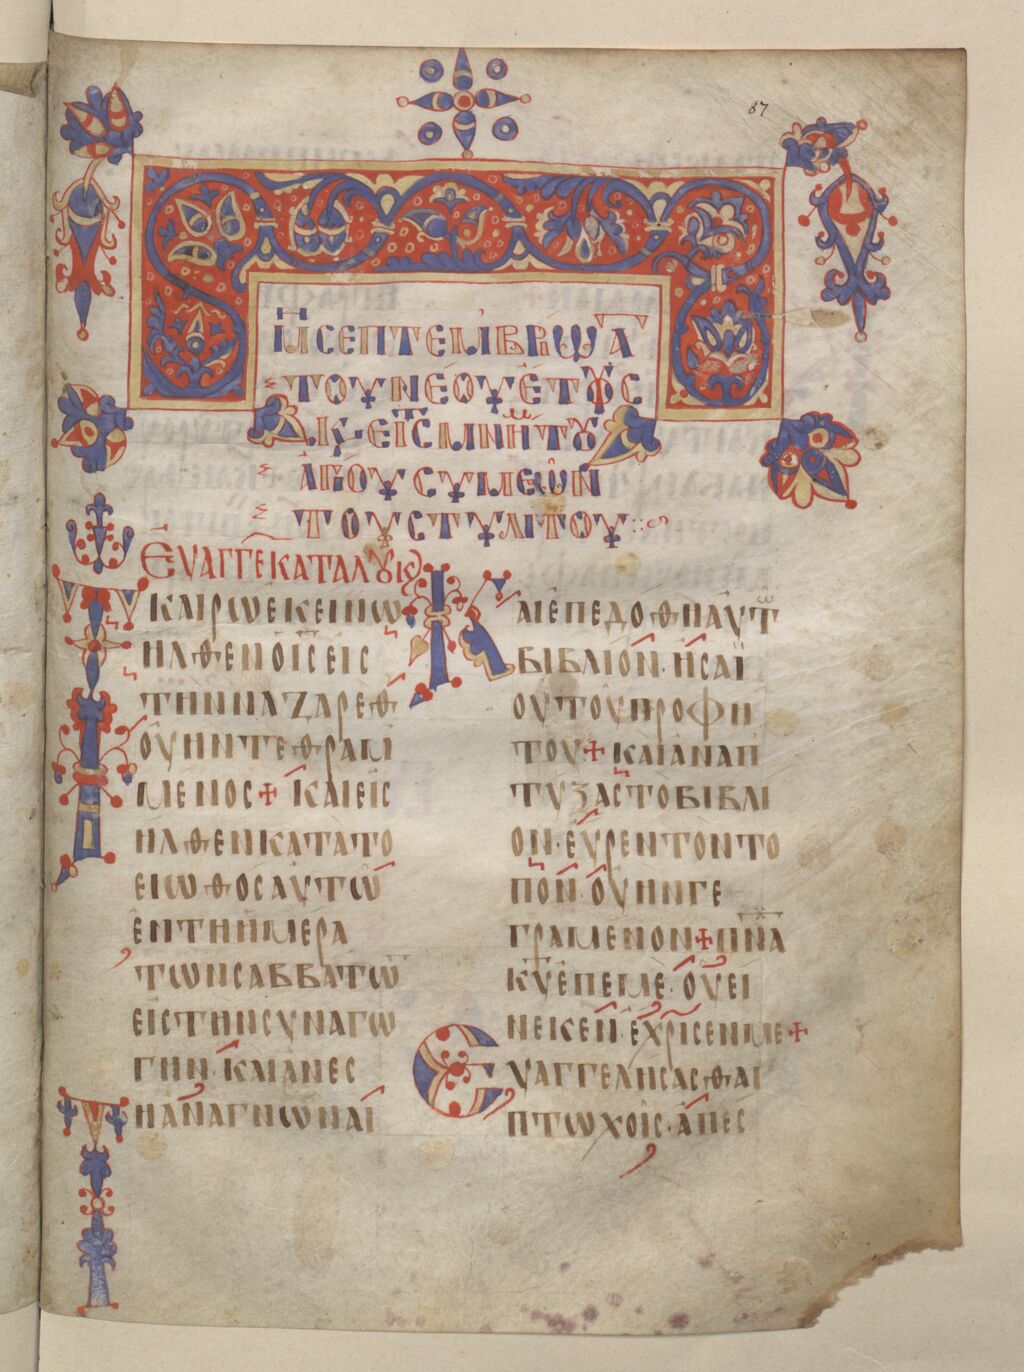 87
ΜΗ ΣΕΠΤΕΜΒΡΙΩ Α
ΤΟΥ ΝΕΟΥ ΕΤΟΥΣ
ΑΓΙΟΥ ΣΥΜΕΩΝ
ΤΟΥ ΣΤΥΛΙΤΟΥ
ΕΥΑΓΓΕ ΚΑΤΑ ΛΟΥΚ
Τ ΚΑΙΡΩ ΕΚΕΙΝΩ
ΗΛΘΕΝ Ο ΙΣ ΕΙΣ
ΤΗΝ ΝΑΖΑΡΕΘ
ΟΥ ΗΝ ΤΕΘΡΑΜ
ΜΕΝΟΣ + ΚΑΙ ΕΙΣ
ΗΛΘΕΝ ΚΑΤΑ ΤΟ
ΕΙΩΘΟΣ ΑΥΤΩ
ΕΝ ΤΗ ΗΜΕΡΑ
ΤΩΝ ΣΑΒΒΑΤΩ
ΕΙΣ ΤΗΝ ΣΥΝΑΓΩ
ΓΗΝ· ΚΑΙ ΑΝΕΣ
ΤΗ ΑΝΑΓΝΩΝΑΙ
ΚΑΙ ΕΠΕΔΟΘΗ ΑΥΤΩ
ΒΙΒΛΙΟΝ· ΗΣΑΪ
ΟΥ ΤΟΥ ΠΡΟΦΗ
ΤΟΥ + ΚΑΙ ΑΝΑΠ
ΤΥΞΑΣ ΤΟ ΒΙΒΛΙ
ΟΝ· ΕΥΡΕΝ ΤΟΝ ΤΟ
ΠΟΝ· ΟΥ ΗΝ ΓΕ
ΓΡΑΜΕΝΟΝ + ΠΝΑ
ΚΥ ΕΠ ΕΜΕ· ΟΥ ΕΙ
ΝΕΚΕΝ· ΕΧΡΙΣΕΝ ΜΕ +
ΕΥΑΓΓΕΛΗΣΑΣΘΑΙ
ΠΤΩΧΟΙΣ· ΑΠΕΣ